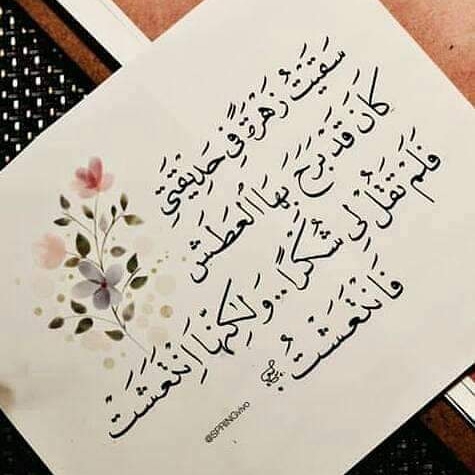 سَقَيْتُ زَهْرَةً فِي حَدِيقَتِي
كَانَ قَدْ بَرَحَ بِهَا الْعَطَشُ
فَلَمْ تَقُلْ لِي شُكْرًا.. وَلَكِنَّهَا اِنْتَعَشَتْ
فَانْتَعَشْتُ
@SPRINGvivo